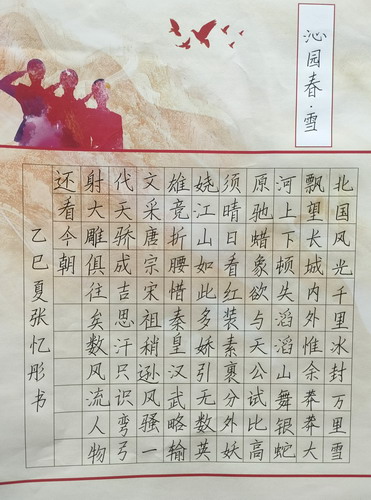 沁园春·雪
北国风光千里冰封万里雪
飘望长城内外惟余莽莽大
河上下顿失滔滔山舞银蛇
原驰蜡象欲与天公试比高
须晴日看红装素裹分外妖
娆江山如此多娇引无数英
雄竞折腰惜秦皇汉武略输
文采唐宗宋祖稍逊风骚一
代天骄成吉思汗只识弯弓
射大雕俱往矣数风流人物
还看今朝
乙巳夏张忆彤书